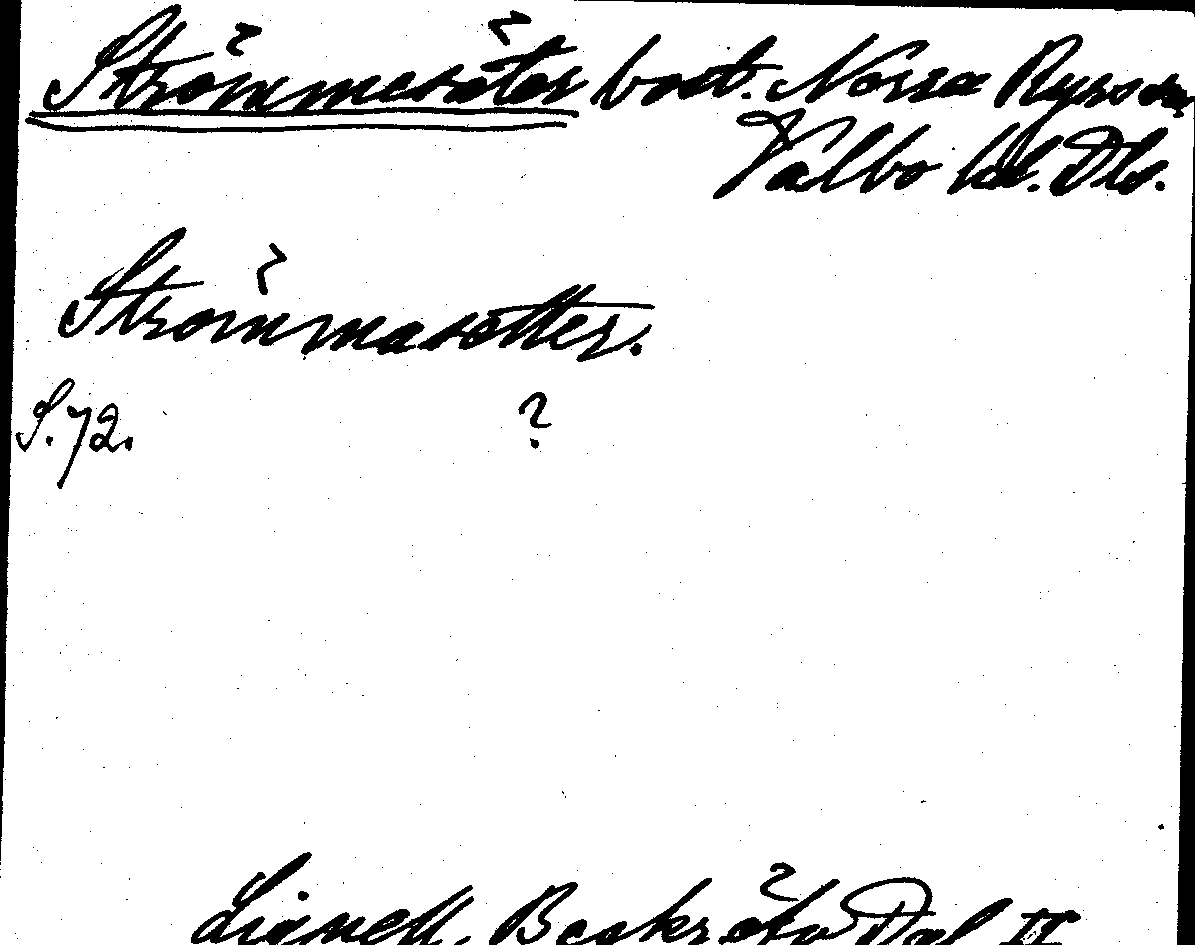 Strömmesäter bost. Norra Ryrs sn,
Valbo hd. Dls.
Strömmasätter.
S. 72. ?
Lignell, Beskr. öfv. Dal II